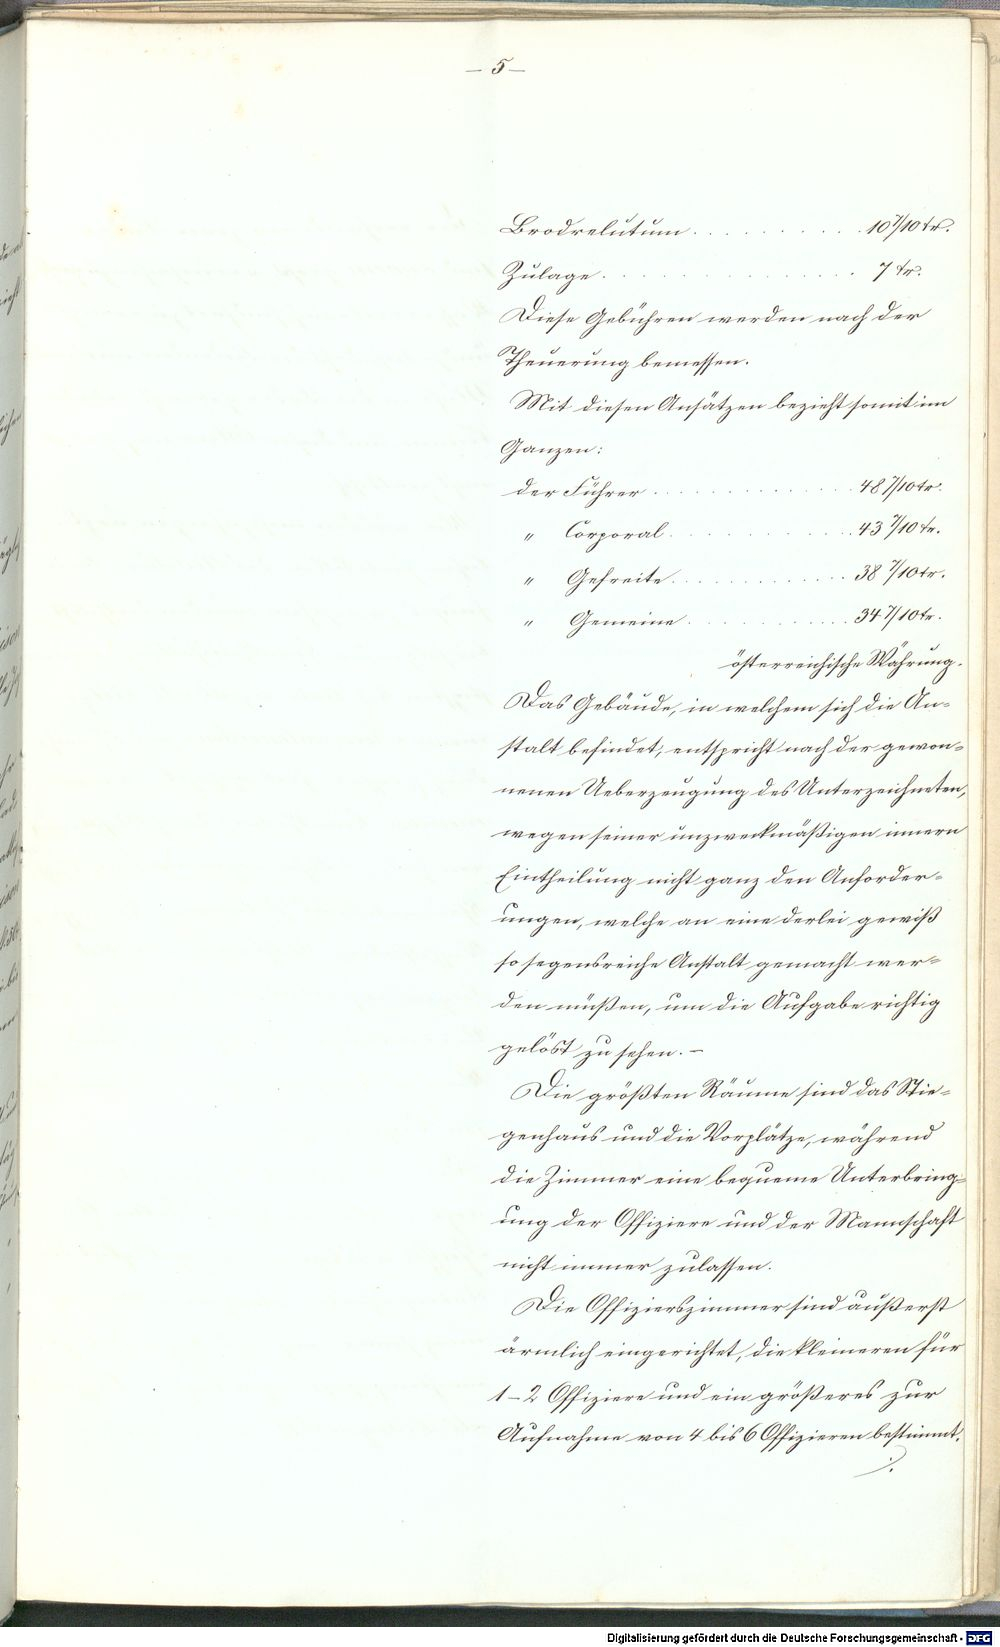 — 5 —
Brodrelutum . . . . . . . . . . 10 7/10 kr.
Zulage . . . . . . . . . . . . . . . 7 kr.
Diese Gebühren werden nach der
Theuerung bemessen.
Mit diesen Ansätzen bezieht somit im
Ganzen:
der Führer . . . . . . . . . . . . . 48 7/10 kr.
„ Corporal . . . . . . . . . . . . 43 7/10 kr.
„ Gefreite . . . . . . . . . . . . . 38 7/10 kr.
„ Gemeine . . . . . . . . . . . . 34 7/10 kr.
österreichische Währung.
Das Gebäude, in welchem sich die An=
stalt befindet, entspricht nach der gewon=
nenen Ueberzeugung des Unterzeichneten,
wegen seiner unzweckmäßigen innern
Eintheilung nicht ganz den Anforder=
ungen, welche an eine derlei gewiß
so segensreiche Anstalt gemacht wer=
den müßen, um die Aufgabe richtig
gelöst zu sehen. —
Die größten Räume sind das Stie=
genhaus und die Vorplätze, während
die Zimmer eine bequeme Unterbring=
ung der Offiziere und der Mannschaft
nicht immer zulassen.
Die Offizierszimmer sind äußerst
ärmlich eingerichtet, die kleineren für
1–2 Offiziere und ein größeres zur
Aufnahme von 4 bis 6 Offizieren bestimmt.
./.
Digitalisierung gefördert durch die Deutsche Forschungsgemeinschaft - DFG